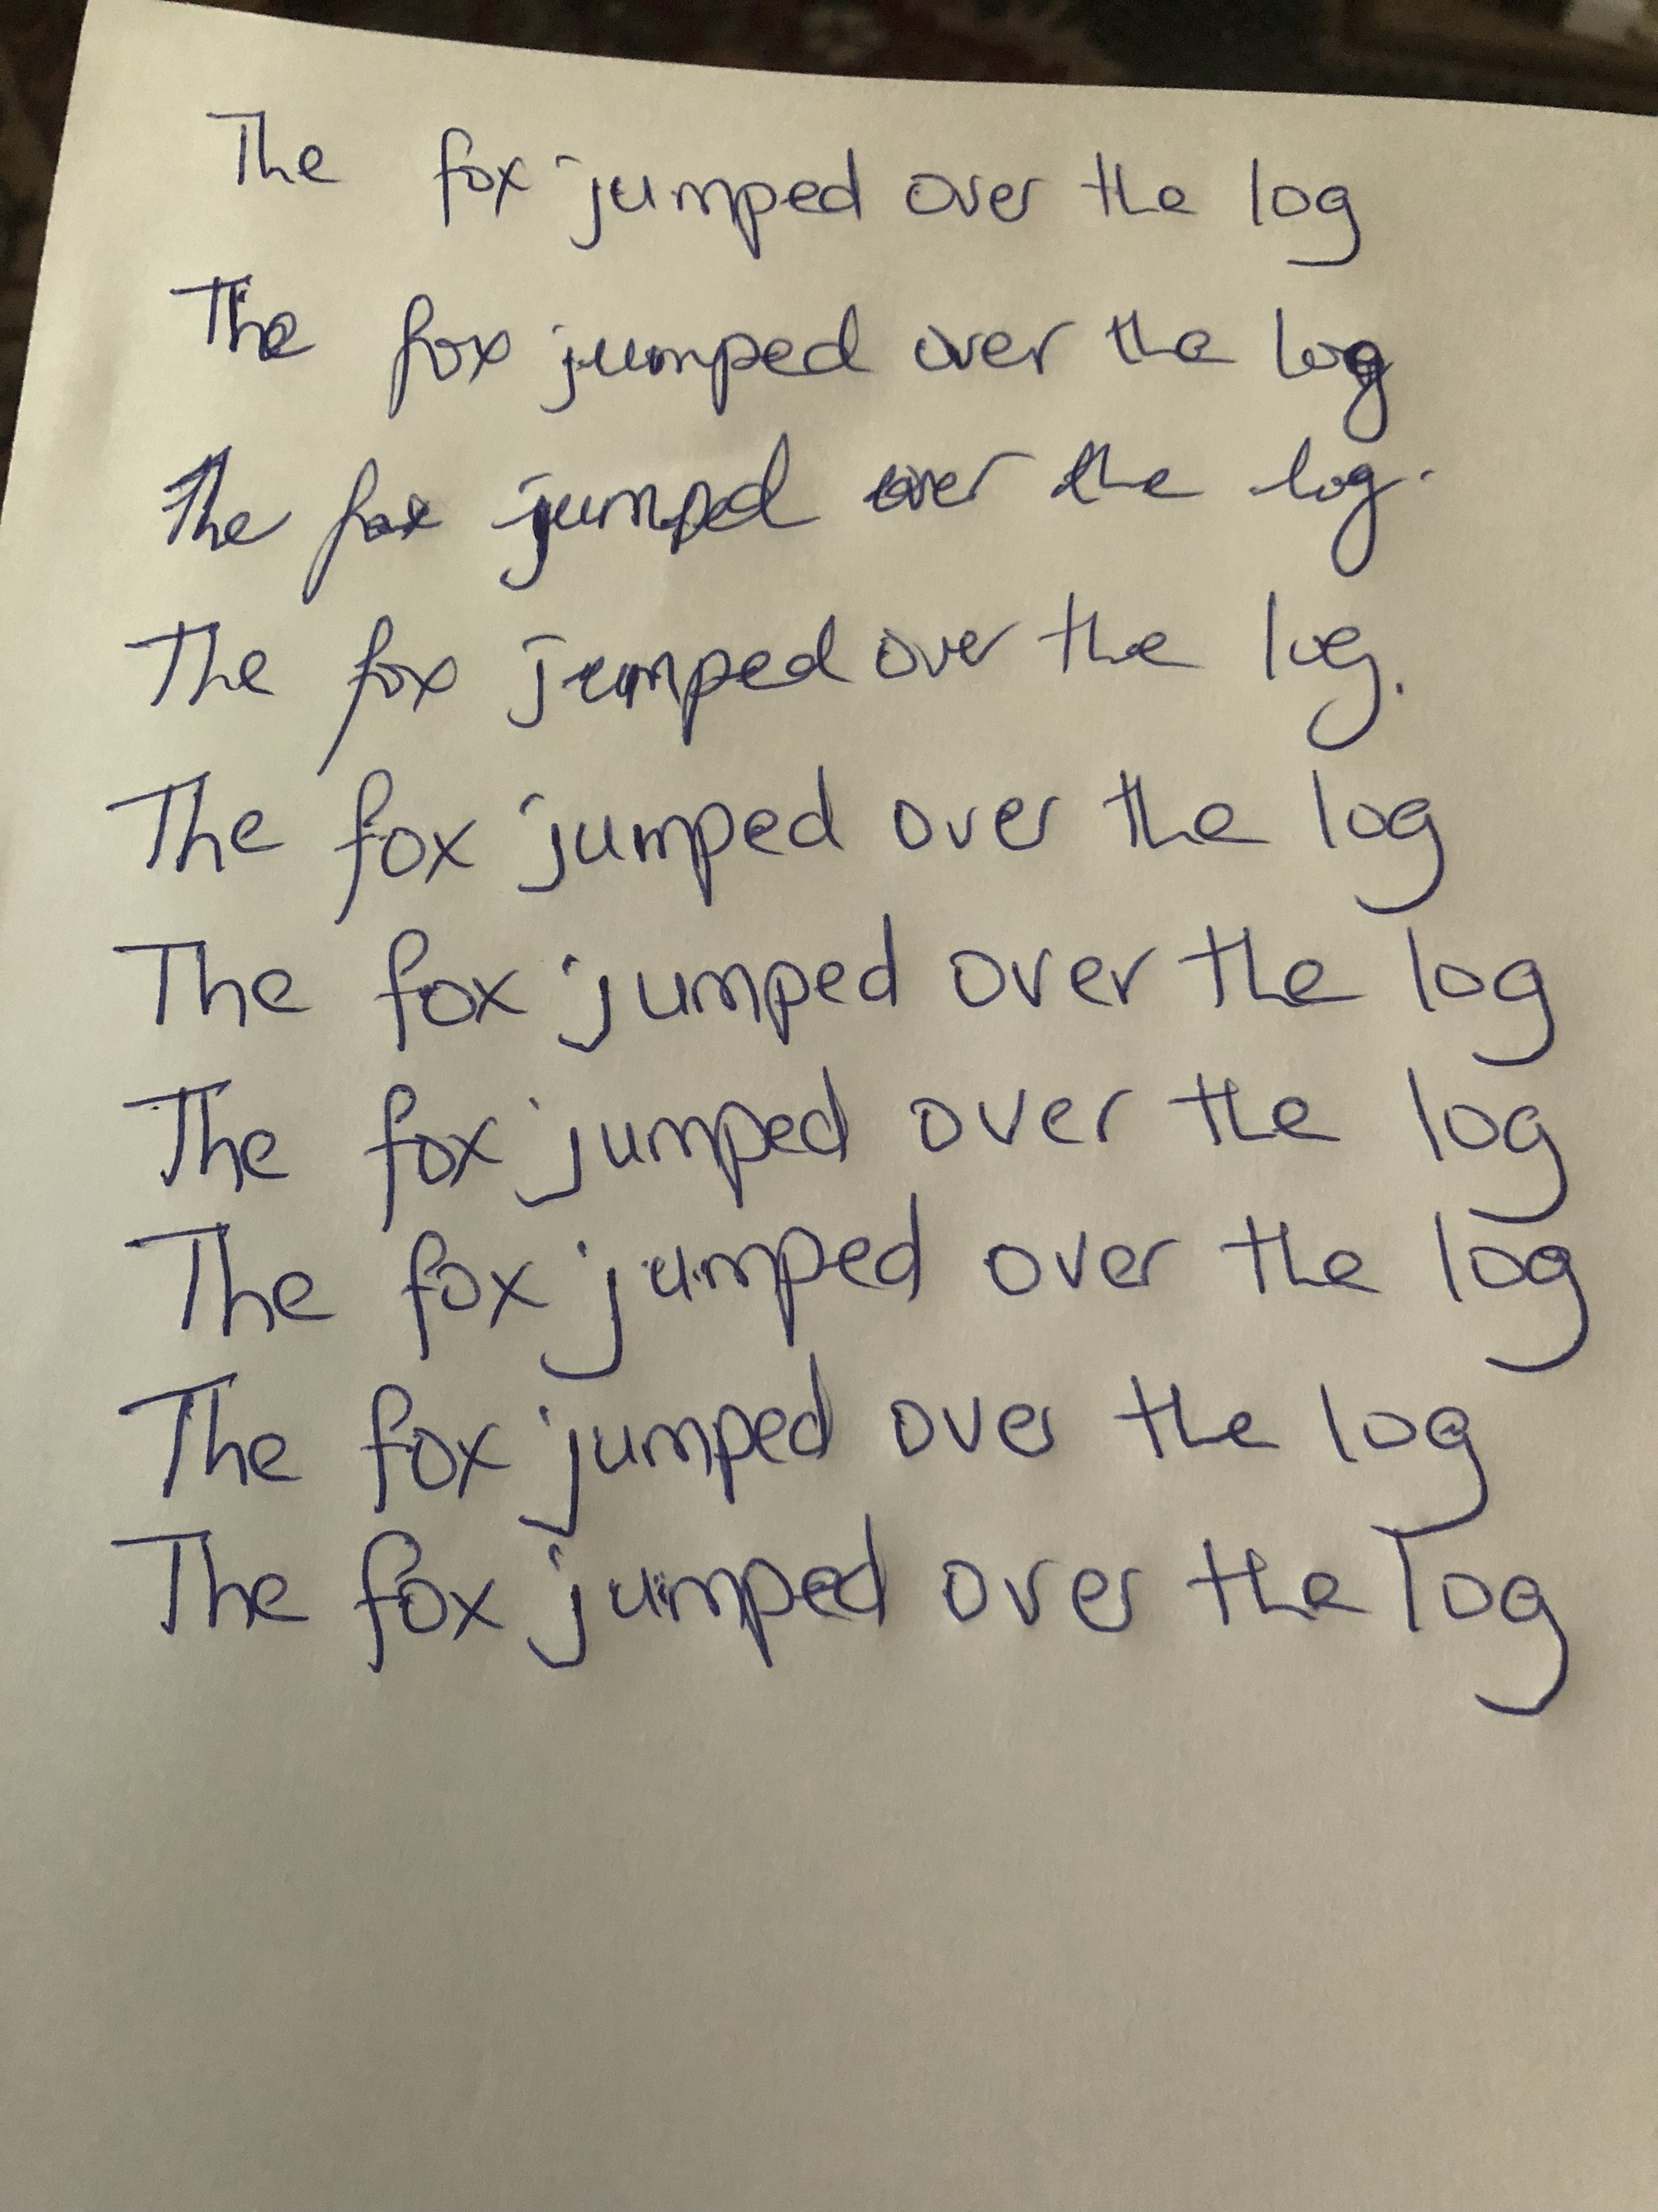 The fox jumped over the log
The fox jumped over the log
The fox jumped over the log.
The fox jumped over the log.
The fox jumped over the log
The fox jumped over the log
The fox jumped over the log
The fox jumped over the log
The fox jumped over the log
The fox jumped over the log